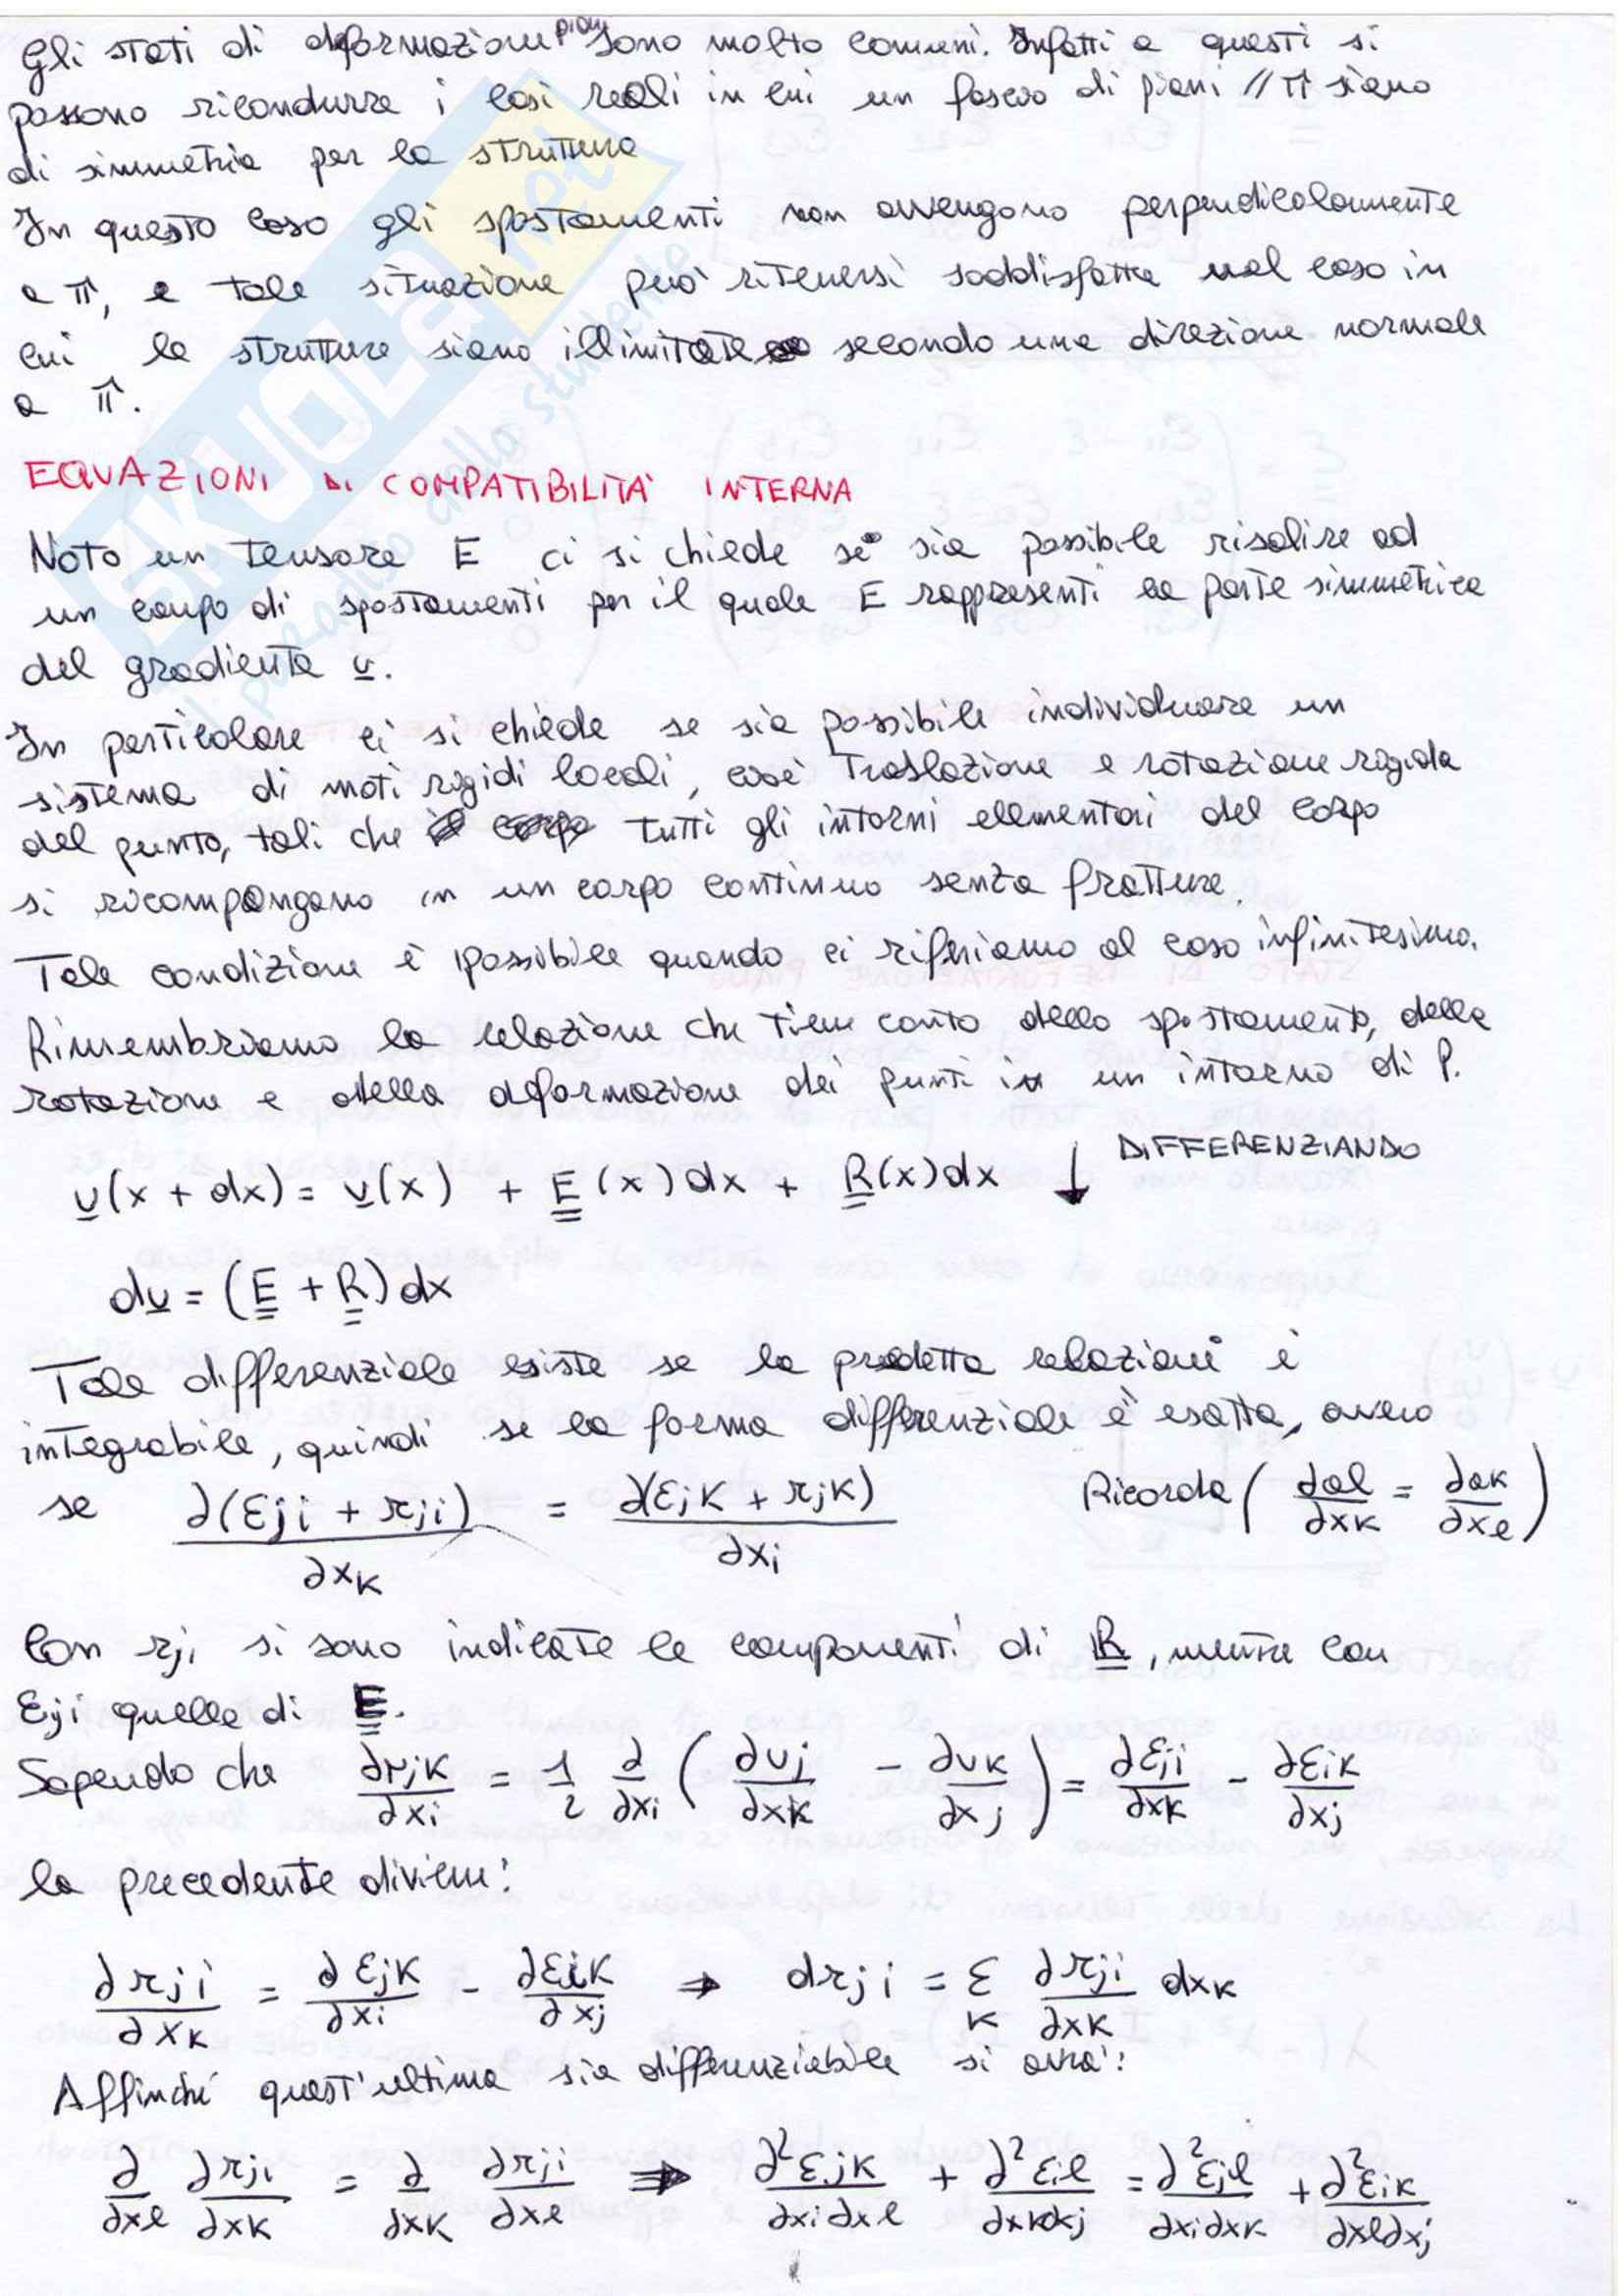 Gli stati di deformazione piani sono molto comuni. Infatti a questi si
possono ricondurre i casi reali in cui un fascio di piani // π siano
di simmetria per la struttura
In questo caso gli spostamenti non avvengono perpendicolarmente
a π, e tale situazione può ritenersi soddisfatta nel caso in
cui le strutture siano illimitate secondo una direzione normale
a π.
EQUAZIONI DI COMPATIBILITÀ INTERNA
Noto un tensore E ci si chiede se sia possibile risalire ad
un campo di spostamenti per il quale E rappresenti la parte simmetrica
del gradiente u.
In particolare ci si chiede se sia possibile individuare un
sistema di moti rigidi locali, cioè traslazione e rotazione rigida
del punto, tali che tutti gli intorni elementari del corpo
si ricompongano in un corpo continuo senza fratture.
Tale condizione è possibile quando ci riferiamo al caso infinitesimo.
Rimembriamo la relazione che tiene conto dello spostamento, della
rotazione e della deformazione dei punti in un intorno di P.
u(x + dx) = u(x) + E(x)dx + R(x)dx ↓ DIFFERENZIANDO
du = (E + R)dx
Tale differenziale esiste se la predetta relazione è
integrabile, quindi se la forma differenziale è esatta, ovvero
se ∂(εji + rji)/∂xk = ∂(εjk + rjk)/∂xi Ricorda (∂al/∂xk = ∂ak/∂xl)
Con rji si sono indicate le componenti di R, mentre con
εji quelle di E.
Sapendo che ∂rjk/∂xi = 1/2 ∂/∂xi (∂uj/∂xk - ∂uk/∂xj) = ∂εji/∂xk - ∂εik/∂xj
la precedente diviene:
∂rji/∂xk = ∂εjk/∂xi - ∂εik/∂xj ⇒ drji = Σk ∂rji/∂xk dxk
Affinché quest'ultima sia differenziabile si avrà:
∂/∂xl ∂rji/∂xk = ∂/∂xk ∂rji/∂xl ⇒ ∂²εjk/∂xi∂xl + ∂²εil/∂xk∂xj = ∂²εjl/∂xi∂xk + ∂²εik/∂xl∂xj
SKUOLA.net
il paradiso dello studente